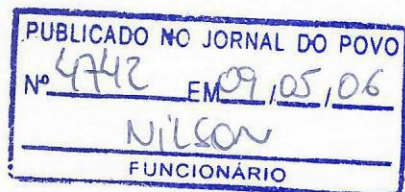 PUBLICADO NO JORNAL DO POVO
Nº 4742 EM 09,05,06
NILSON
FUNCIONÁRIO